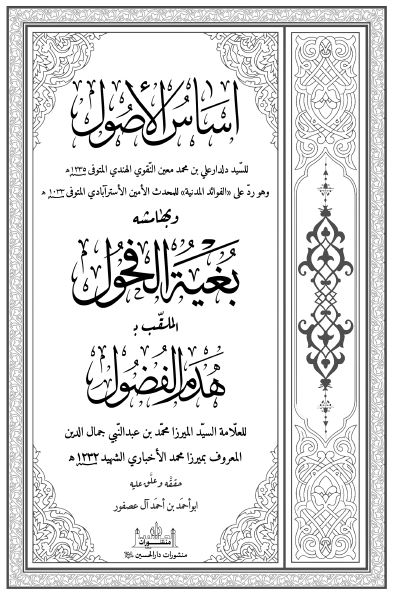 اساس الأصول
للسّيد دلدار علي بن محمد معين النّقوي الهندي المتوفى ١٢٣٥ه
وهو ردّ على «الفوائد المدنية» للمحدث الأمين الأسترآبادي المتوفى ١٠٣٣ ه
وبهامشه
بغية الفحول
الملقّب بـ
هدم الفضول
للعلّامة السيّد الميرزا محمّد بن عبدالنّبي جمال الدين
المعروف بميرزا محمد الأخباري الشهيد ١٢٣٢ ه
حققه وعلّق عليه
ابوأحمَد بن أحمَد آل عصفور
منشورات
منشورات دارالحسين